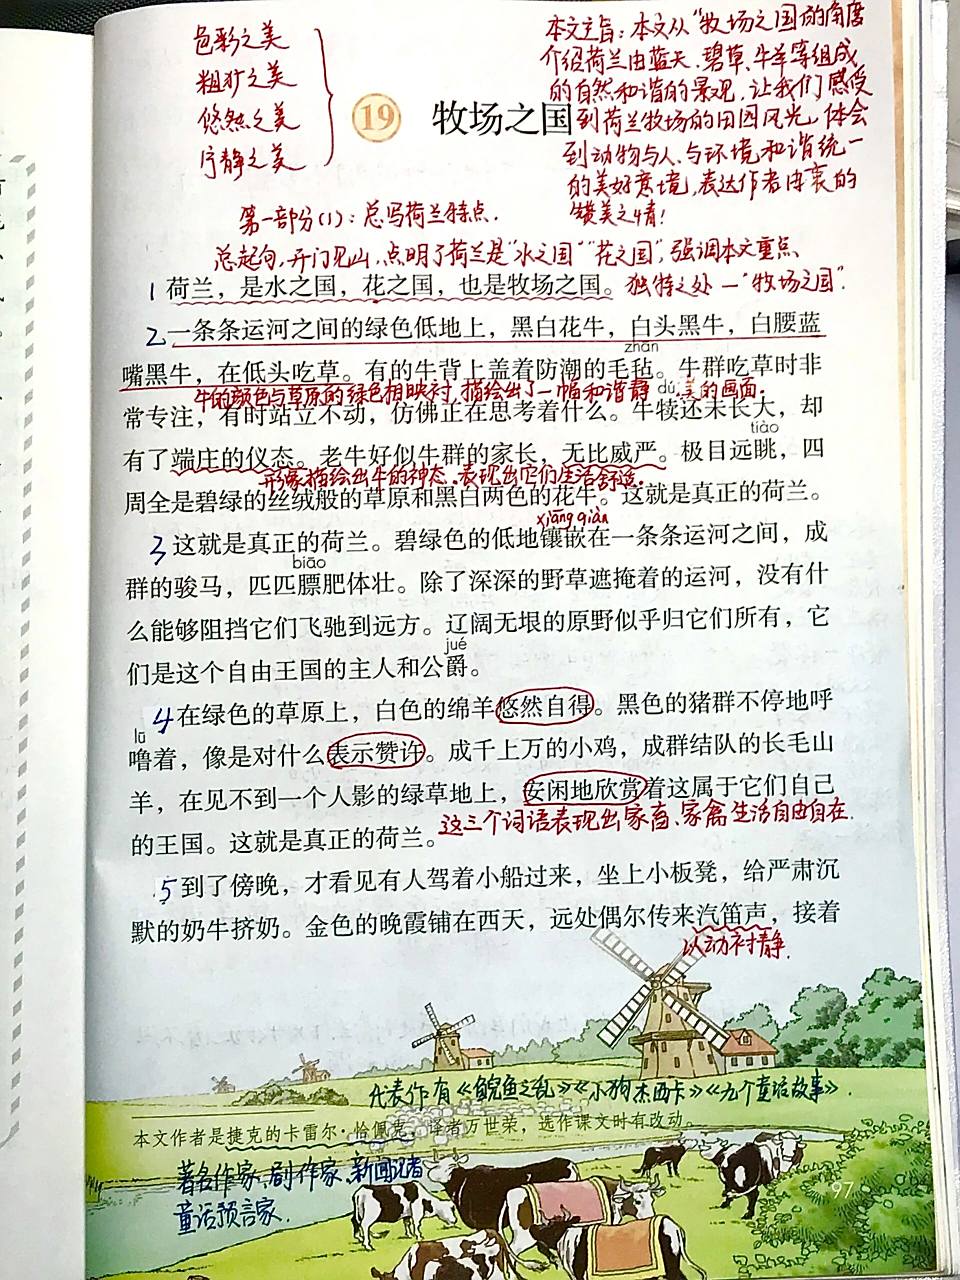 色彩之美
粗犷之美
悠然之美
宁静之美
19 牧场之国
本文主旨:本文从“牧场之国”的角度
介绍荷兰由蓝天、碧草、牛羊等组成
的自然和谐的景观,让我们感受
到荷兰牧场的田园风光,体会
到动物与人、与环境和谐统一
的美好意境,表达作者由衷的
赞美之情!
第一部分(1):总写荷兰特点.
总起句,开门见山,点明了荷兰是“水之国”“花之国”,强调本文重点
1 荷兰,是水之国,花之国,也是牧场之国。 独特之处—“牧场之国”.
2 一条条运河之间的绿色低地上,黑白花牛,白头黑牛,白腰蓝
zhān
嘴黑牛,在低头吃草。有的牛背上盖着防潮的毛毡。牛群吃草时非
牛的颜色与草原的绿色相映衬,描绘出了一幅和谐静 美的画面.
dú
常专注,有时站立不动,仿佛正在思考着什么。牛犊还未长大,却
tiào
有了端庄的仪态。老牛好似牛群的家长,无比威严。极目远眺,四
形象描绘出牛的神态,表现出它们生活舒适.
周全是碧绿的丝绒般的草原和黑白两色的花牛。这就是真正的荷兰。
xiāng qiàn
3 这就是真正的荷兰。碧绿色的低地镶嵌在一条条运河之间,成
biāo
群的骏马,匹匹膘肥体壮。除了深深的野草遮掩着的运河,没有什
么能够阻挡它们飞驰到远方。辽阔无垠的原野似乎归它们所有,它
jué
们是这个自由王国的主人和公爵。
4 在绿色的草原上,白色的绵羊悠然自得。黑色的猪群不停地呼
lū
噜着,像是对什么表示赞许。成千上万的小鸡,成群结队的长毛山
羊,在见不到一个人影的绿草地上,安闲地欣赏着这属于它们自己
的王国。这就是真正的荷兰。
这三个词语表现出家畜、家禽生活自由自在.
5 到了傍晚,才看见有人驾着小船过来,坐上小板凳,给严肃沉
默的奶牛挤奶。金色的晚霞铺在西天,远处偶尔传来汽笛声,接着
以动衬静.
代表作有《鲵鱼之乱》《小狗杰西卡》《九个童话故事》.
本文作者是捷克的卡雷尔·恰佩克,译者万世荣,选作课文时有改动。
著名作家、剧作家、新闻记者
童话预言家.
97